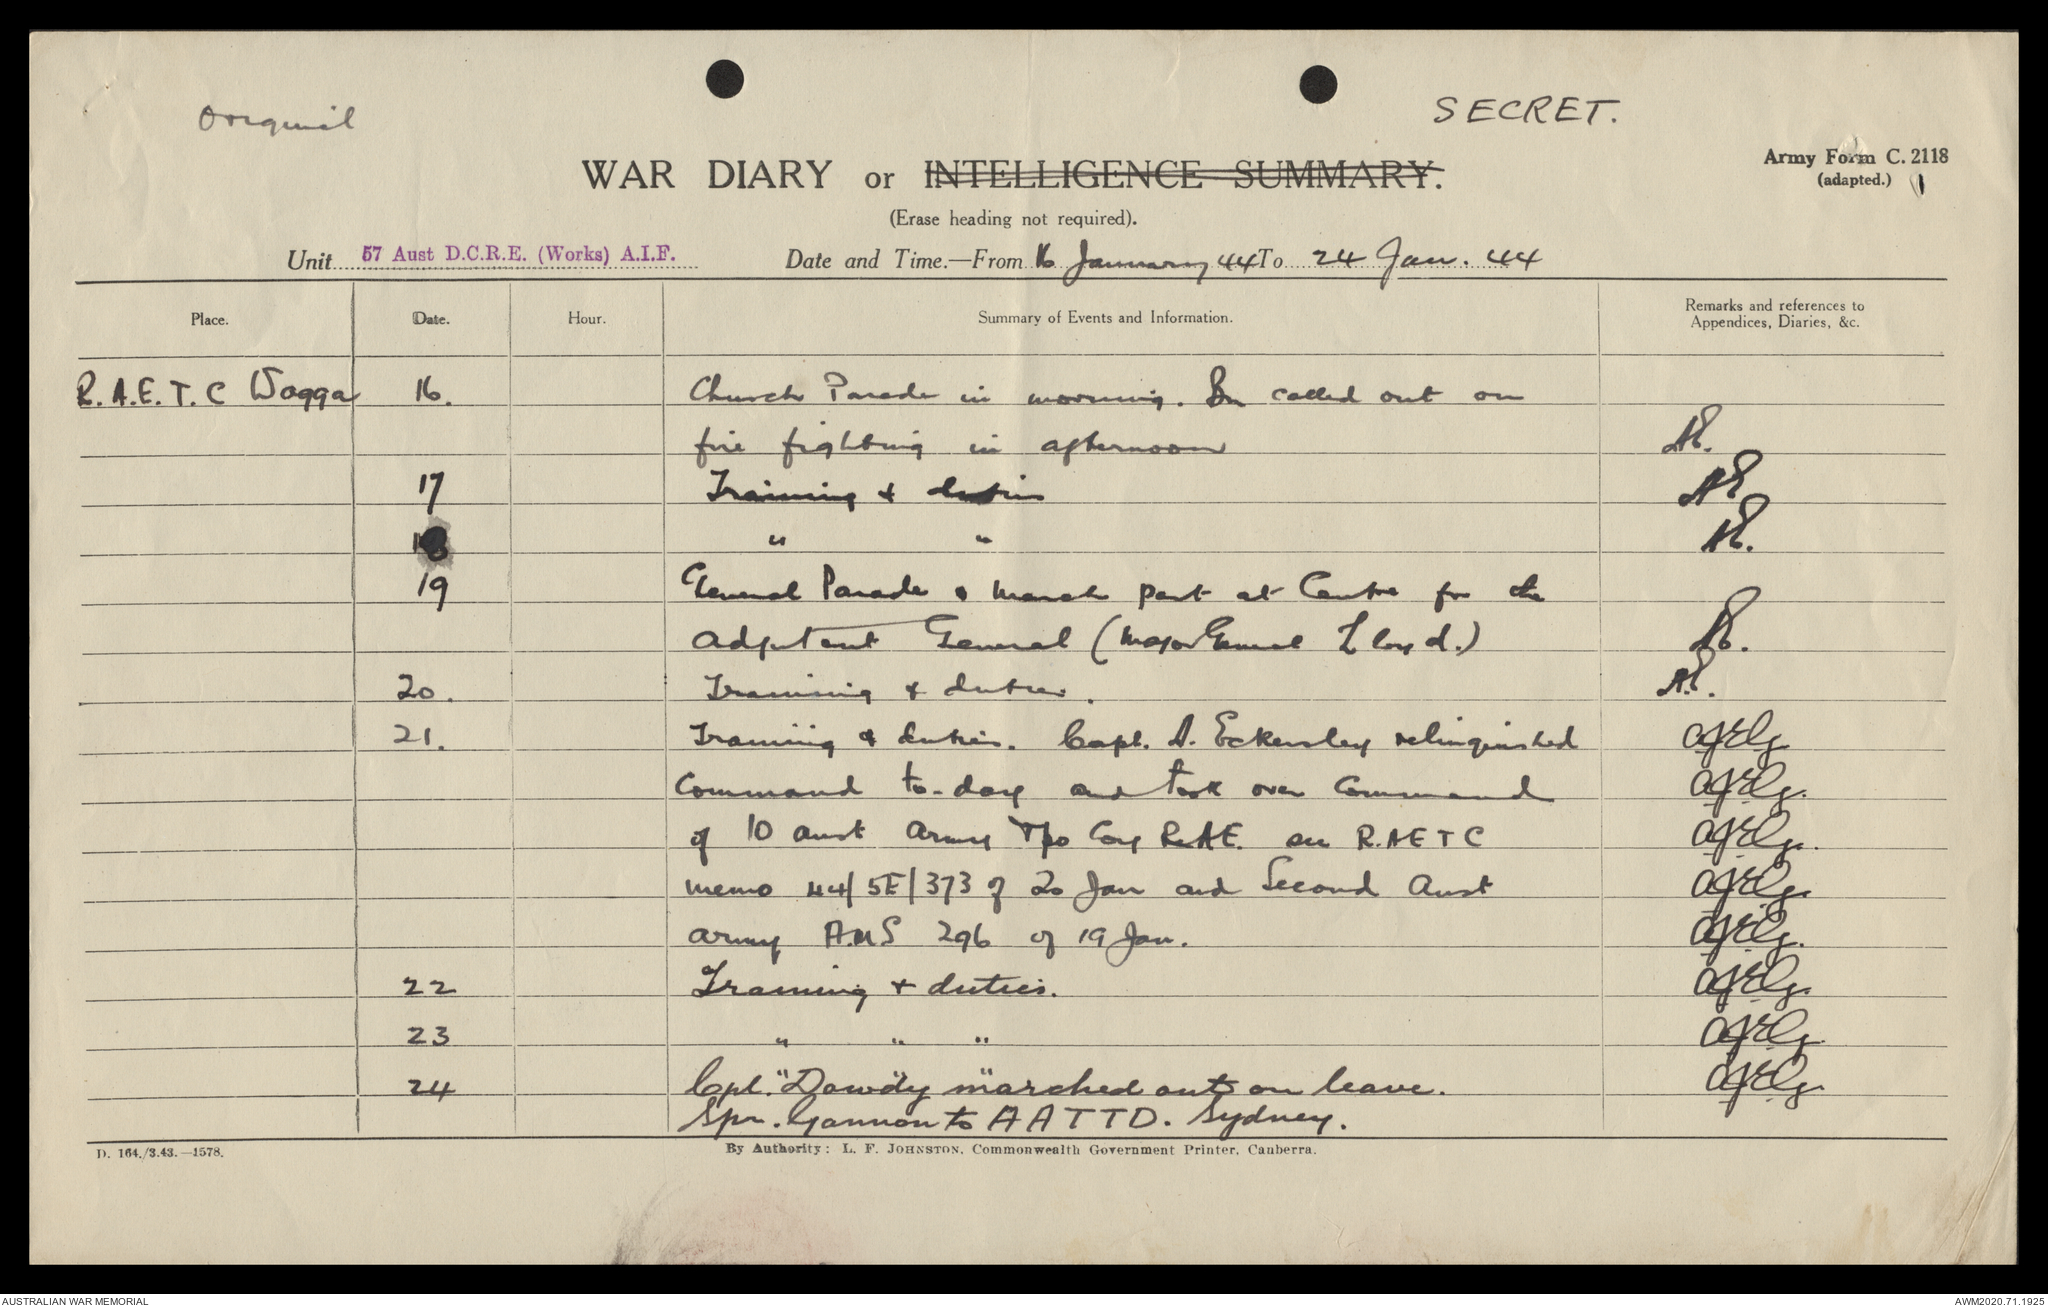 Original
SECRET.
WAR DIARY or INTELLIGENCE SUMMARY.
Army Form C. 2118
(adapted.)
(Erase heading not required).
Unit 57 Aust D.C.R.E. (Works) A.I.F. Date and Time.—From 16 January 44 To 24 Jan. 44
Place. Date. Hour. Summary of Events and Information. Remarks and references to Appendices, Diaries, &c.
R.A.E.T.C Wagga 16. Church Parade in morning. called out on
fire fighting in afternoon AE.
17 Training & duties AE
18 " " AE.
19 General Parade & March past at Centre for the
Adjutant General (Major General Lloyd.) AE.
20. Training & duties. AE.
21. Training & duties. Capt. A. Eckersley relinquished
Command to-day and took over Command
of 10 Aust Army Tpo Coy RAE. R.AETC
memo 44/5E/373 of 20 Jan and Second Aust
Army AMS 296 of 19 Jan.
22 Training & duties.
23 " " "
24 Cpl. "Dowdy marched out on leave.
Spr. Gannon to AATTD. Sydney.
D. 164./3.43.—1578.
By Authority: L. F. JOHNSTON, Commonwealth Government Printer, Canberra.
AUSTRALIAN WAR MEMORIAL
AWM2020.71.1925